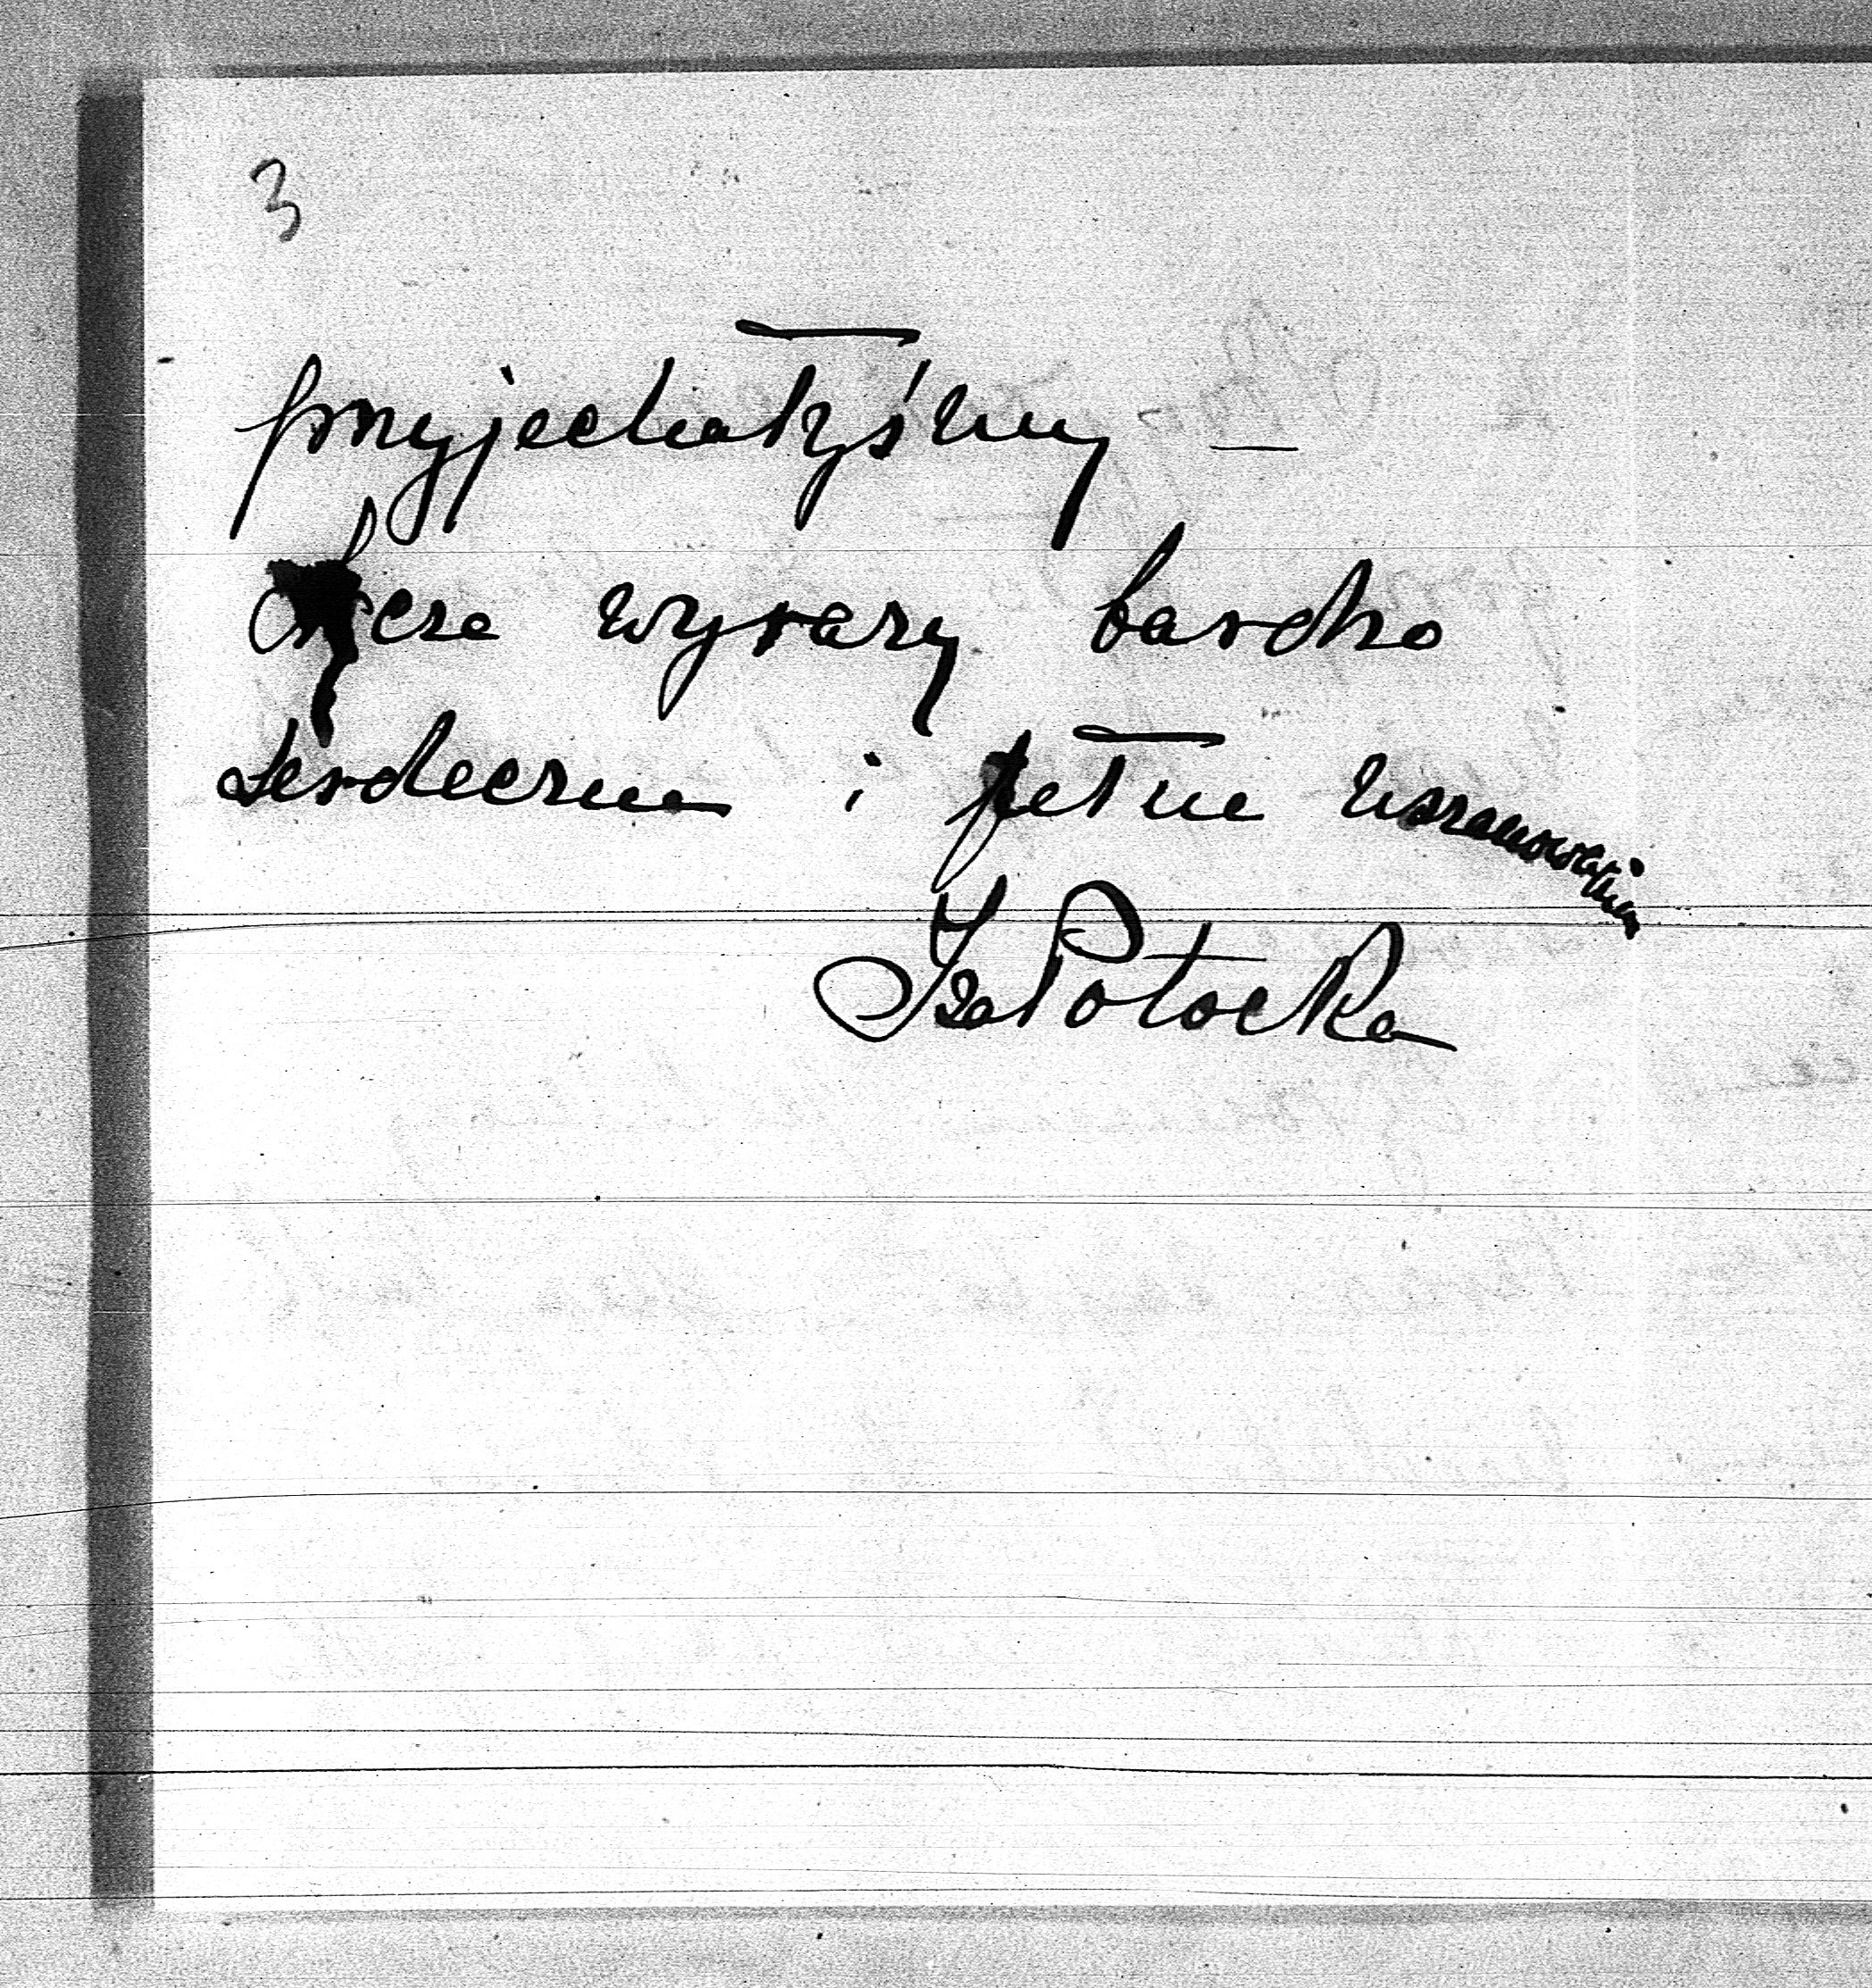 3
przyjechałyśmy –
wyrazy bardzo
serdeczne i pełne uszanowania
Iza Potocka